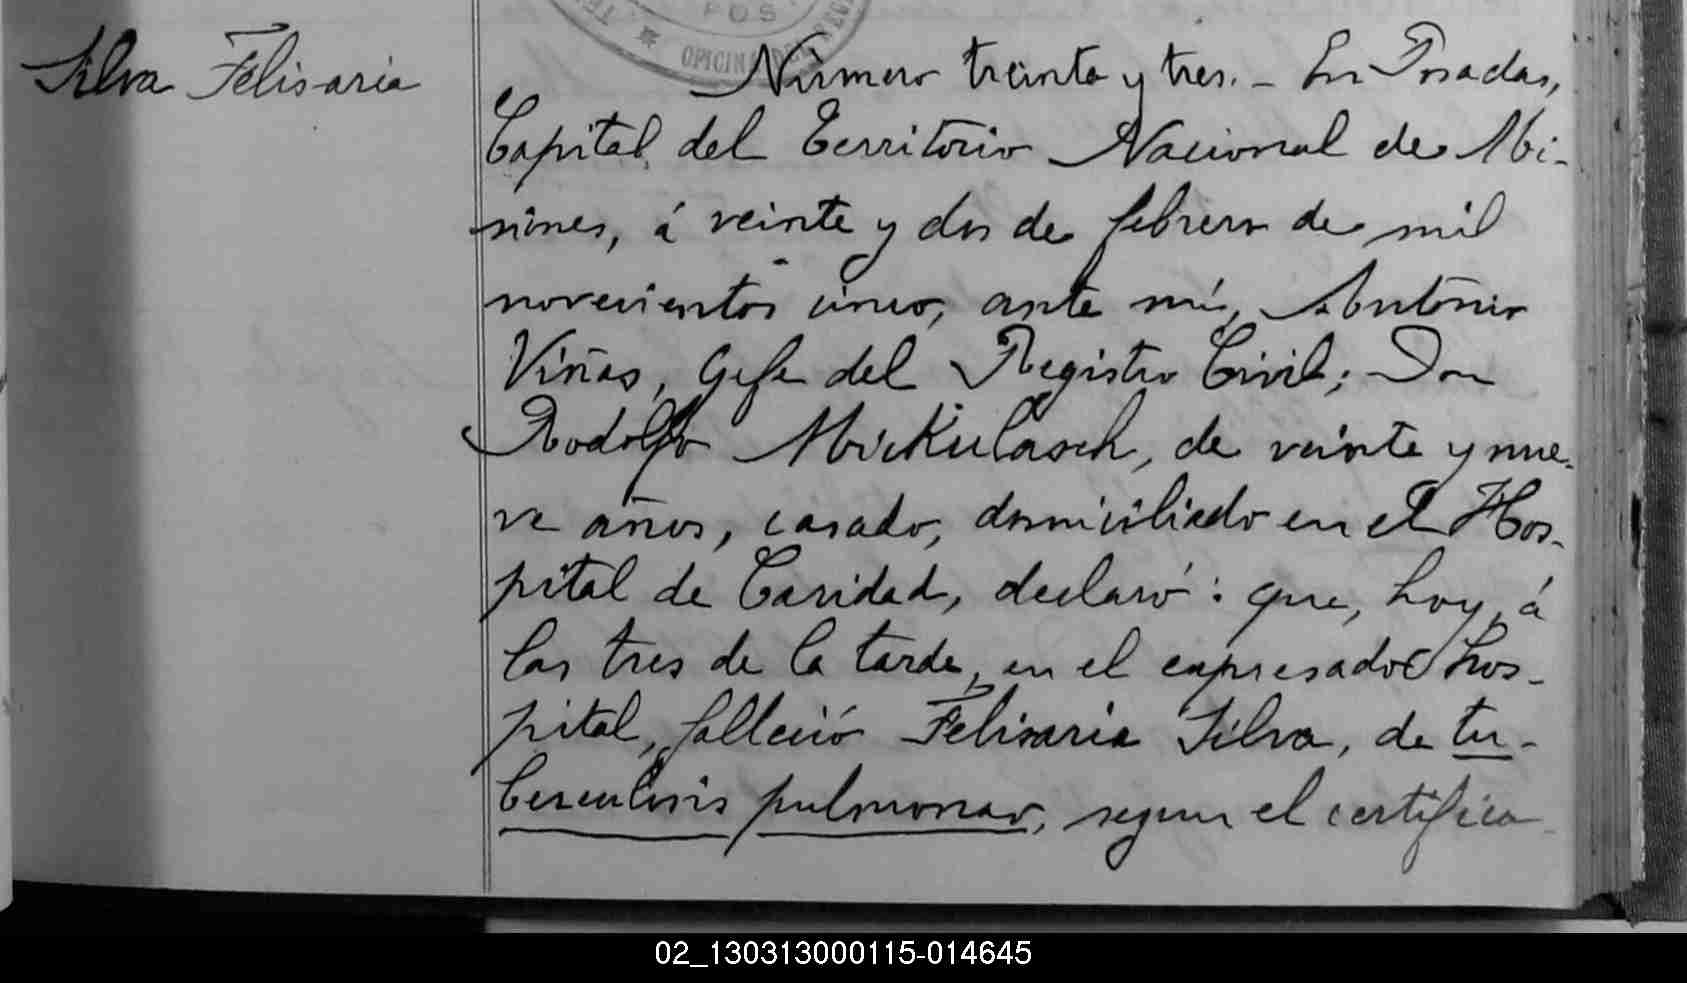 Silva Felisaria
POS
OFICINA DEL REG
Número treinta y tres. - En Posadas,
Capital del Territorio Nacional de Mi-
siones, á veinte y dos de febrero de mil
novecientos cinco, ante mí, Antonio
Viñas, Gefe del Registro Civil; Don
Rodolfo Mickulasch, de veinte y nue-
ve años, casado, domiciliado en el Hos-
pital de Caridad, declaró: que, hoy, á
las tres de la tarde, en el expresado hos-
pital, falleció Felisaria Silva, de tu-
berculosis pulmonar, segun el certifica
02_130313000115-014645